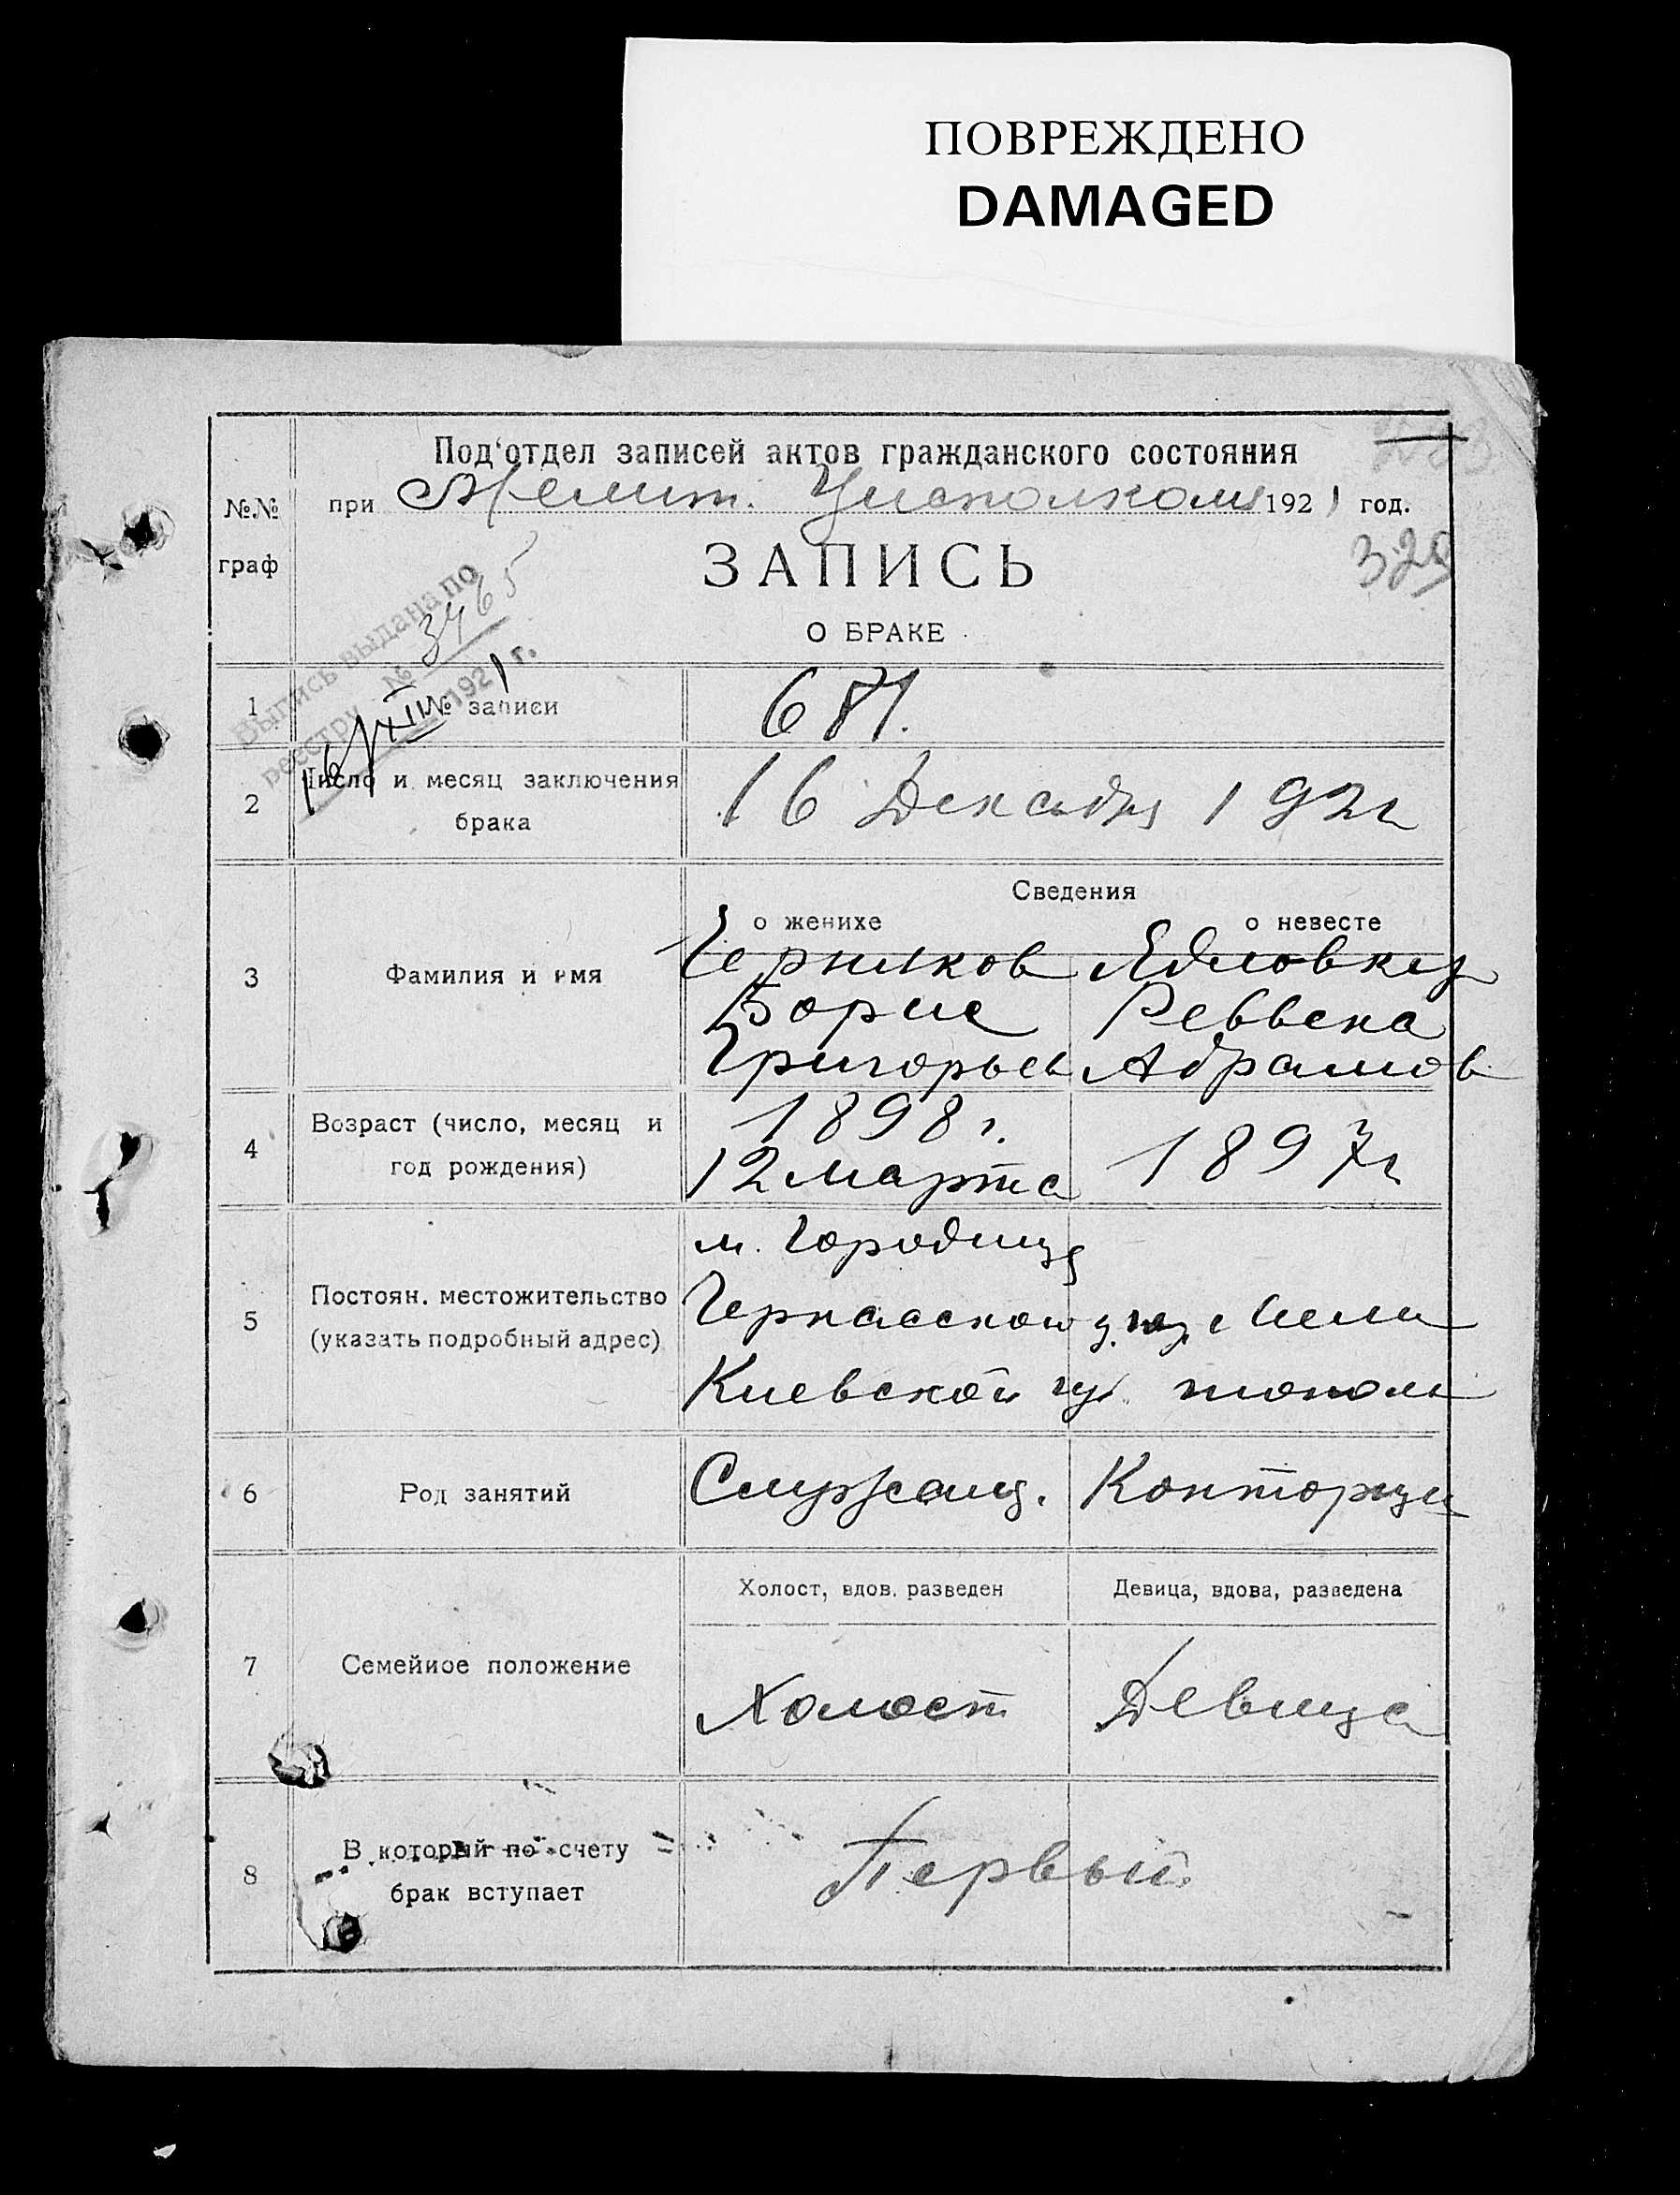 ПОВРЕЖДЕНО
DAMAGED
Под'отдел записей актов гражданского состояния
№№ граф
при Мелит. Уисполкоме 1921 год.
329
ЗАПИСЬ
О БРАКЕ
Выпись выдана по
реестру № 3465
16/XII 1921 г.
1 № записи 681.
2 Число и месяц заключения
брака
16 Декабря 1921
Сведения
о женихе о невесте
3 Фамилия и имя
Черняков
Борис Реввека
Григорьев Абрамов
4 Возраст (число, месяц и
год рождения)
1898 г. 1897 г
12 марта
м. Городище
5 Постоян. местожительство
(указать подробный адрес)
Черкасского у. Мели
Киевской гу. тополь
6 Род занятий Служащ. Конторщи
Холост, вдов. разведен Девица, вдова, разведена
7 Семейное положение Холост Девица
8 В который по счету
брак вступает
Первый